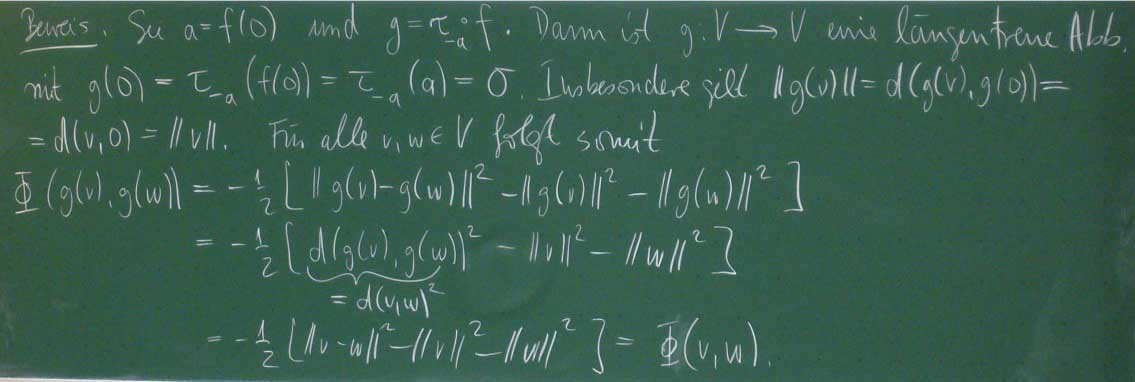 Beweis. Sei a = f(0) und g = τ_{-a} ∘ f. Dann ist g: V → V eine längentreue Abb.
mit g(0) = τ_{-a}(f(0)) = τ_{-a}(a) = 0. Insbesondere gilt ||g(v)|| = d(g(v), g(0)) =
= d(v,0) = ||v||. Für alle v, w ∈ V folgt somit
Φ(g(v), g(w)) = -1/2 [ ||g(v)-g(w)||² - ||g(v)||² - ||g(w)||² ]
= -1/2 [ d(g(v), g(w))² - ||v||² - ||w||² ]
= d(v,w)²
= -1/2 [ ||v-w||² - ||v||² - ||w||² ] = Φ(v,w).